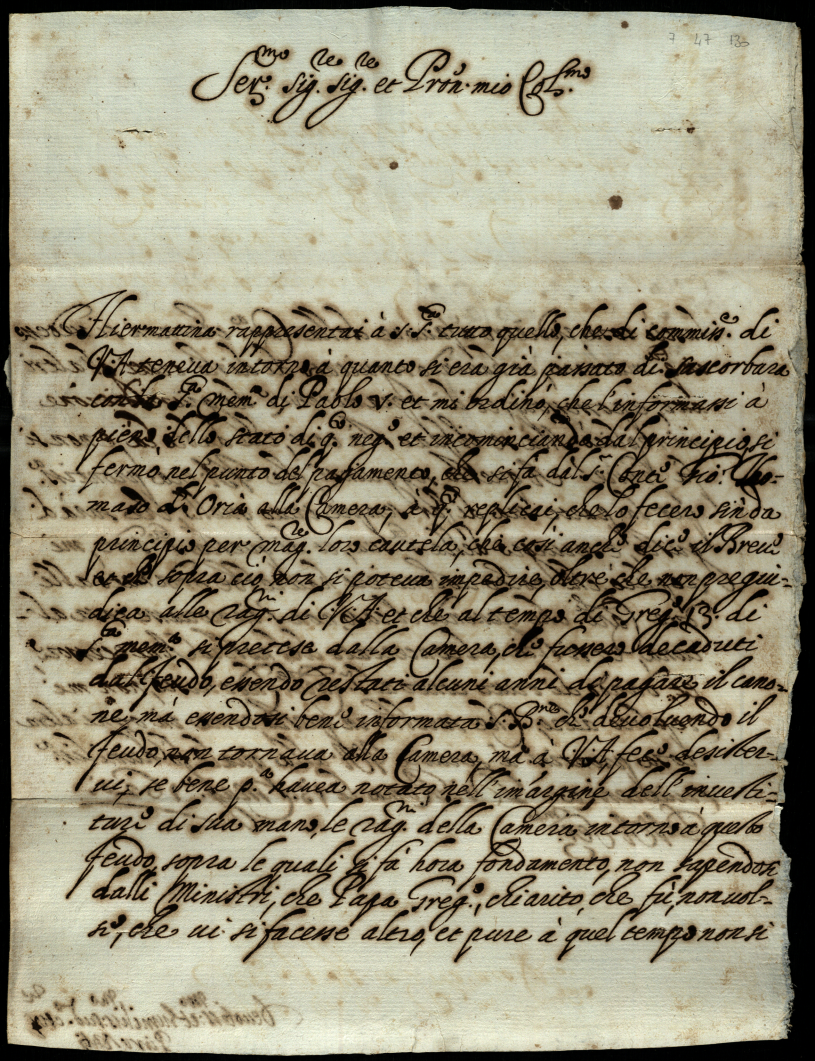 7 47 130
Ser.mo sig.re sig.re et Pron. mio Col.mo
Hiermattina rappresentai à S. S.tà tutto quello, che di commiss.e di
V. A. teneva intorno à quanto si era già passato di
con la S.ta mem.a di Paolo V. et mi ordinò, che l'informassi à
pieno dello stato di q.o neg.o et incominciando dal principio, si
fermò nel punto del pagamento, che si fà dal s.r Conte Gio. Tho-
maso d'Oria alla Camera, à q.o replicai, che lo fecero sin da
principio per mag.re loro cautela, che così anche dice il Breve
et che sopra ciò non si poteva impedire, oltre che non pregiu-
dica alle rag.ni di V. A. et che al tempo di Greg.o 13. di
s.ta mem.a si pretese dalla Camera, che fussero decaduti
dal feudo, essendo restati alcuni anni di pagare il cano-
ne, mà essendosi bene informata S. B.ne che devolvendo il
feudo, non tornava alla Camera, mà à V. A. fece desister-
vi, se bene p.a havea notato nell'imargine dell'investi-
ture di sua mano, le rag.ni della Camera intorno à questo
feudo, sopra le quali si fà hora fondamento, non sapendosi
dalli Ministri, che Papa Greg.o, chiarito che fù, non vol-
se, che vi si facesse altro, et pure à quel tempo non si